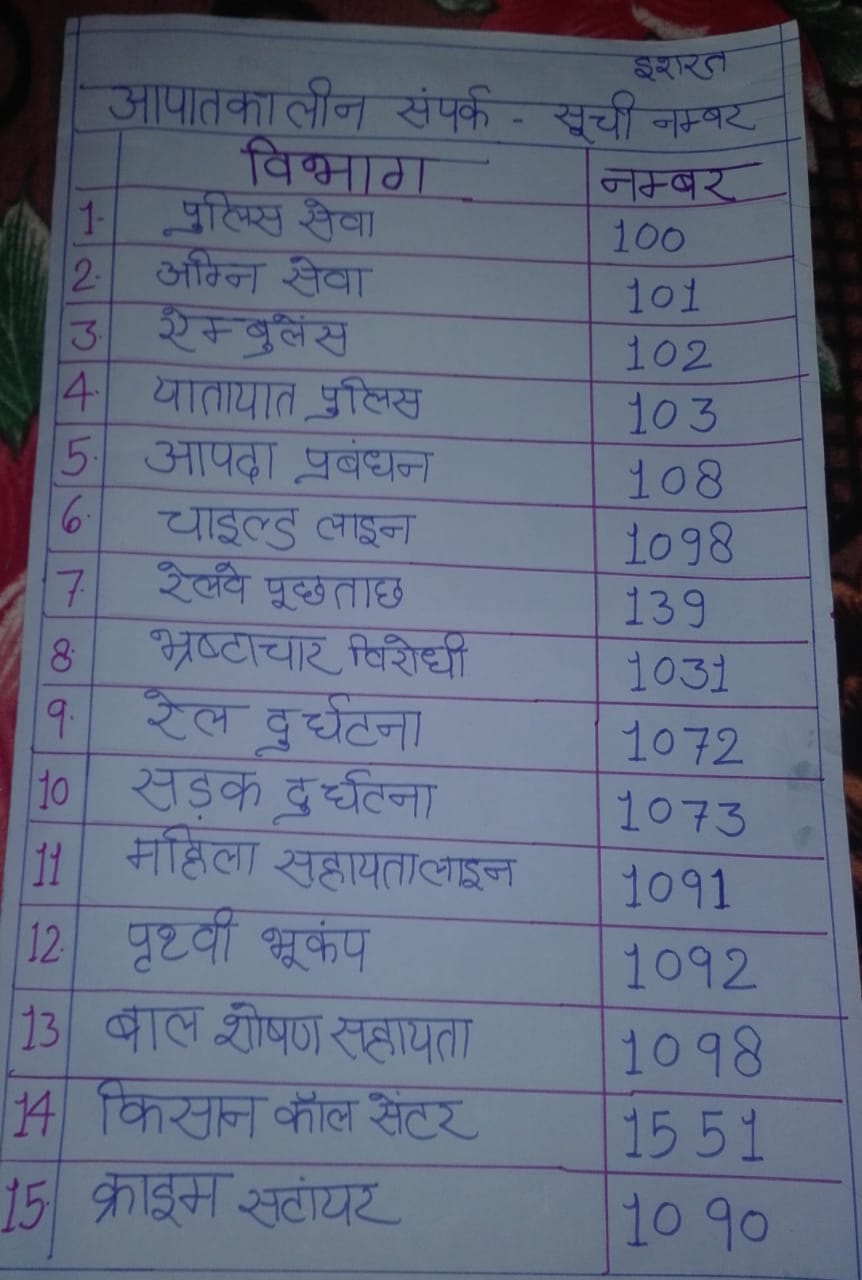 इशरत
आपातकालीन संपर्क - सूची नम्बर
विभाग नम्बर
1. पुलिस सेवा 100
2. अग्नि सेवा 101
3. ऐम्बुलेंस 102
4. यातायात पुलिस 103
5. आपदा प्रबंधन 108
6. चाइल्ड लाइन 1098
7. रेलवे पूछताछ 139
8. भ्रष्टाचार विरोधी 1031
9. रेल दुर्घटना 1072
10 सड़क दुर्घटना 1073
11 महिला सहायतालाइन 1091
12. पृथ्वी भूकंप 1092
13 बाल शोषण सहायता 1098
14 किसान कॉल सेंटर 1551
15. क्राइम सटांपर 1090